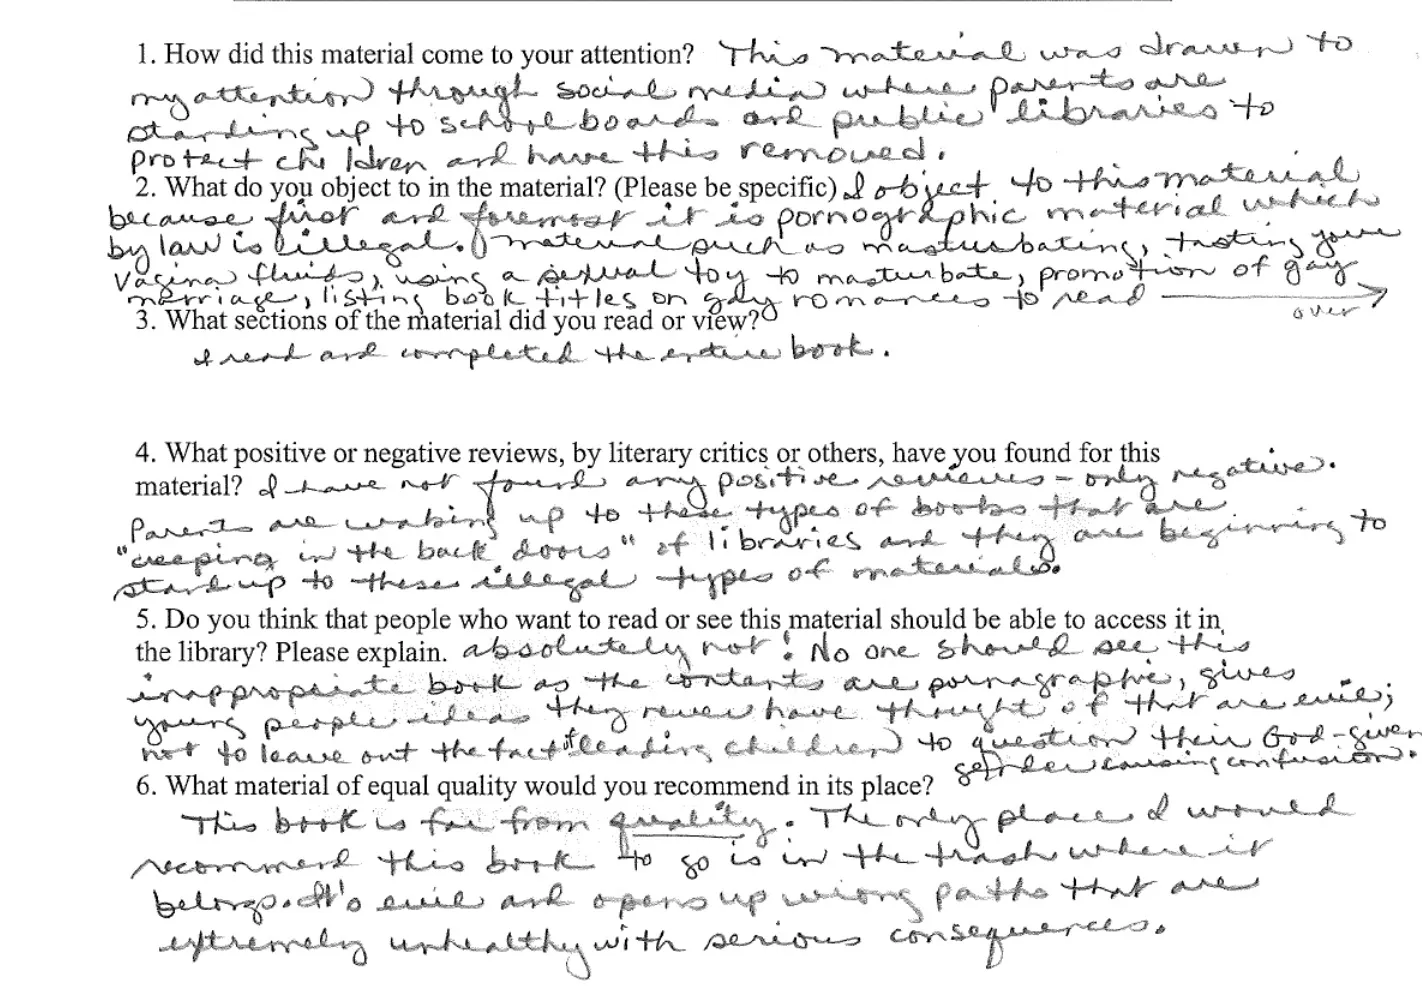 1. How did this material come to your attention? This material was drawn to
my attention through social media where parents are
standing up to school boards and public libraries to
protect children and have this removed.
2. What do you object to in the material? (Please be specific) I object to this material
because first and foremost it is pornographic material which
by law is illegal. Material such as masturbating, tasting your
vagina fluids, using a sexual toy to masturbate, promotion of gay
merriage, listing book titles on gay romances to read →
over
3. What sections of the material did you read or view?
I read and completed the entire book.
4. What positive or negative reviews, by literary critics or others, have you found for this
material? I have not found any positive reviews - only negative.
Parents are waking up to these types of books that are
"creeping in the back doors" of libraries and they are beginning to
stand up to these illegal types of materials.
5. Do you think that people who want to read or see this material should be able to access it in
the library? Please explain. absolutely not! No one should see this
inappropriate book as the contents are pornagraphic, gives
young people ideas they never have thought of that are evil;
not to leave out the fact of leading children to question their God-given
gender causing confusion.
6. What material of equal quality would you recommend in its place?
This book is far from quality. The only place I would
recommend this book to go is in the trash where it
belongs. It's evil and opens up wrong paths that are
extremely unhealthy with serious consequences.